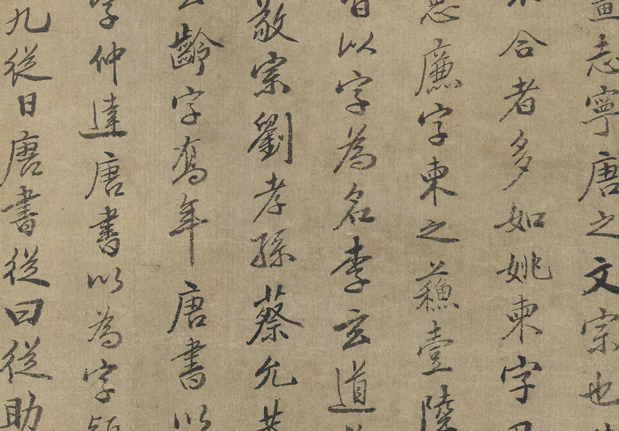 志寧唐之文宗也
合者多如姚柬字
思廉字柬之蘇壹陸
皆以字為名李玄道
敬宗劉孝孫蔡允恭
齡字喬年唐書以
字仲達唐書以為字穎
九從日唐書從曰從助